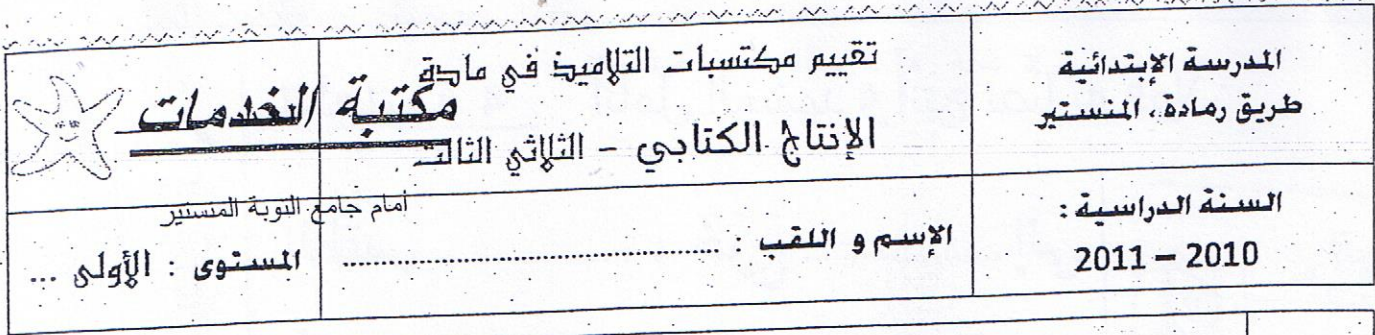 المدرسة الإبتدائية
طريق رمادة، المنستير
تقييم مكتسبات التلاميذ في مادة
الإنتاج الكتابي – الثلاثي الثالث
مكتبة الخدمات
أمام جامع التوبة المنستير
السنة الدراسية :
2010 – 2011
الإسم و اللقب : ................................................
المستوى : الأولى ...